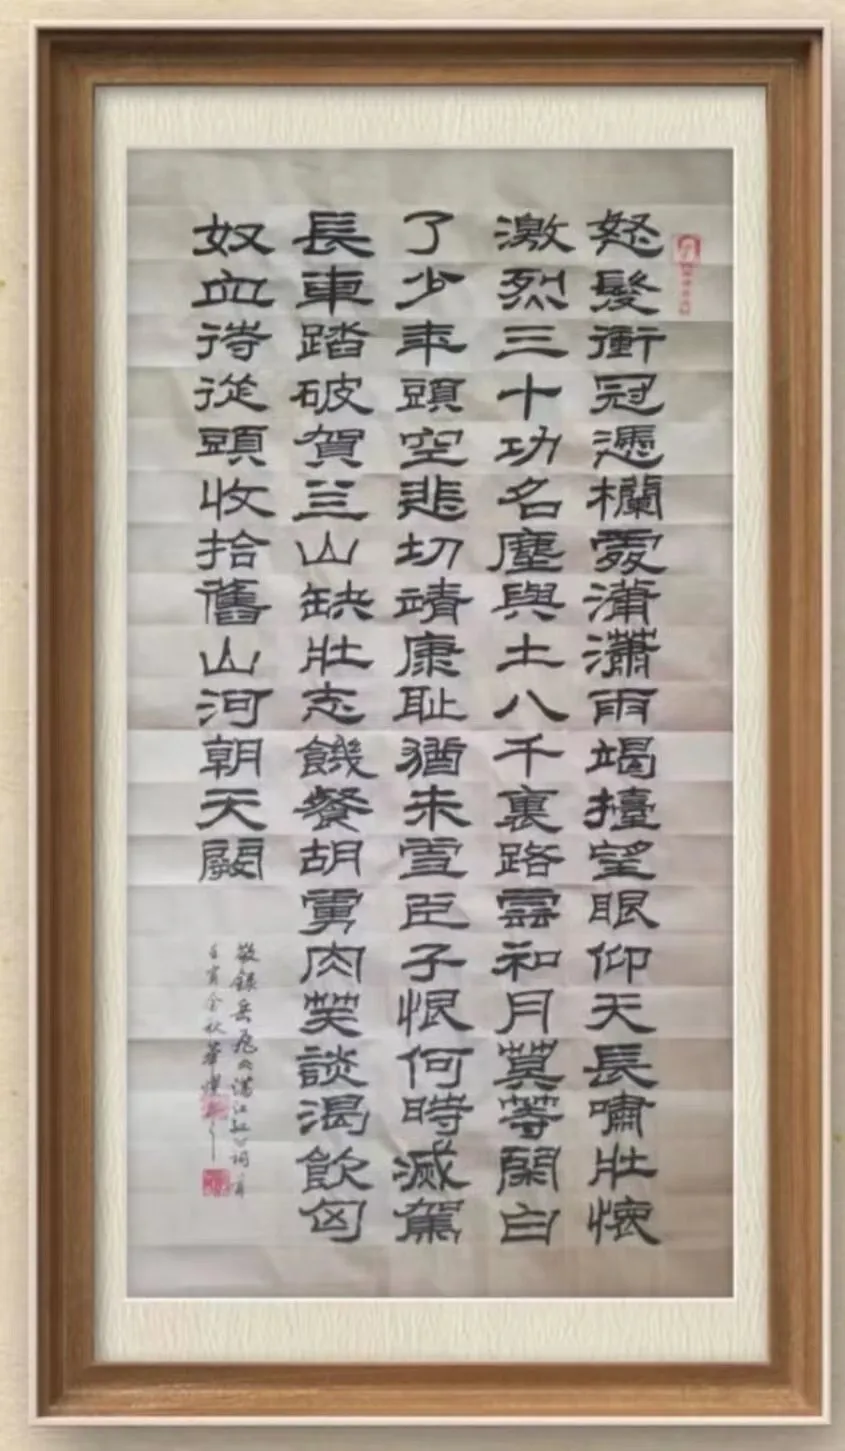 怒髮衝冠憑欄處瀟瀟雨竭擡望眼仰天長嘯壯懷
激烈三十功名塵與土八千裏路雲和月莫等閑白
了少年頭空悲切靖康耻猶未雪臣子恨何時滅駕
長車踏破賀兰山缺壯志饑餐胡虜肉笑談渴飲匈
奴血待從頭收拾舊山河朝天闕
敬録岳飛滿江紅詞
壬寅金秋華